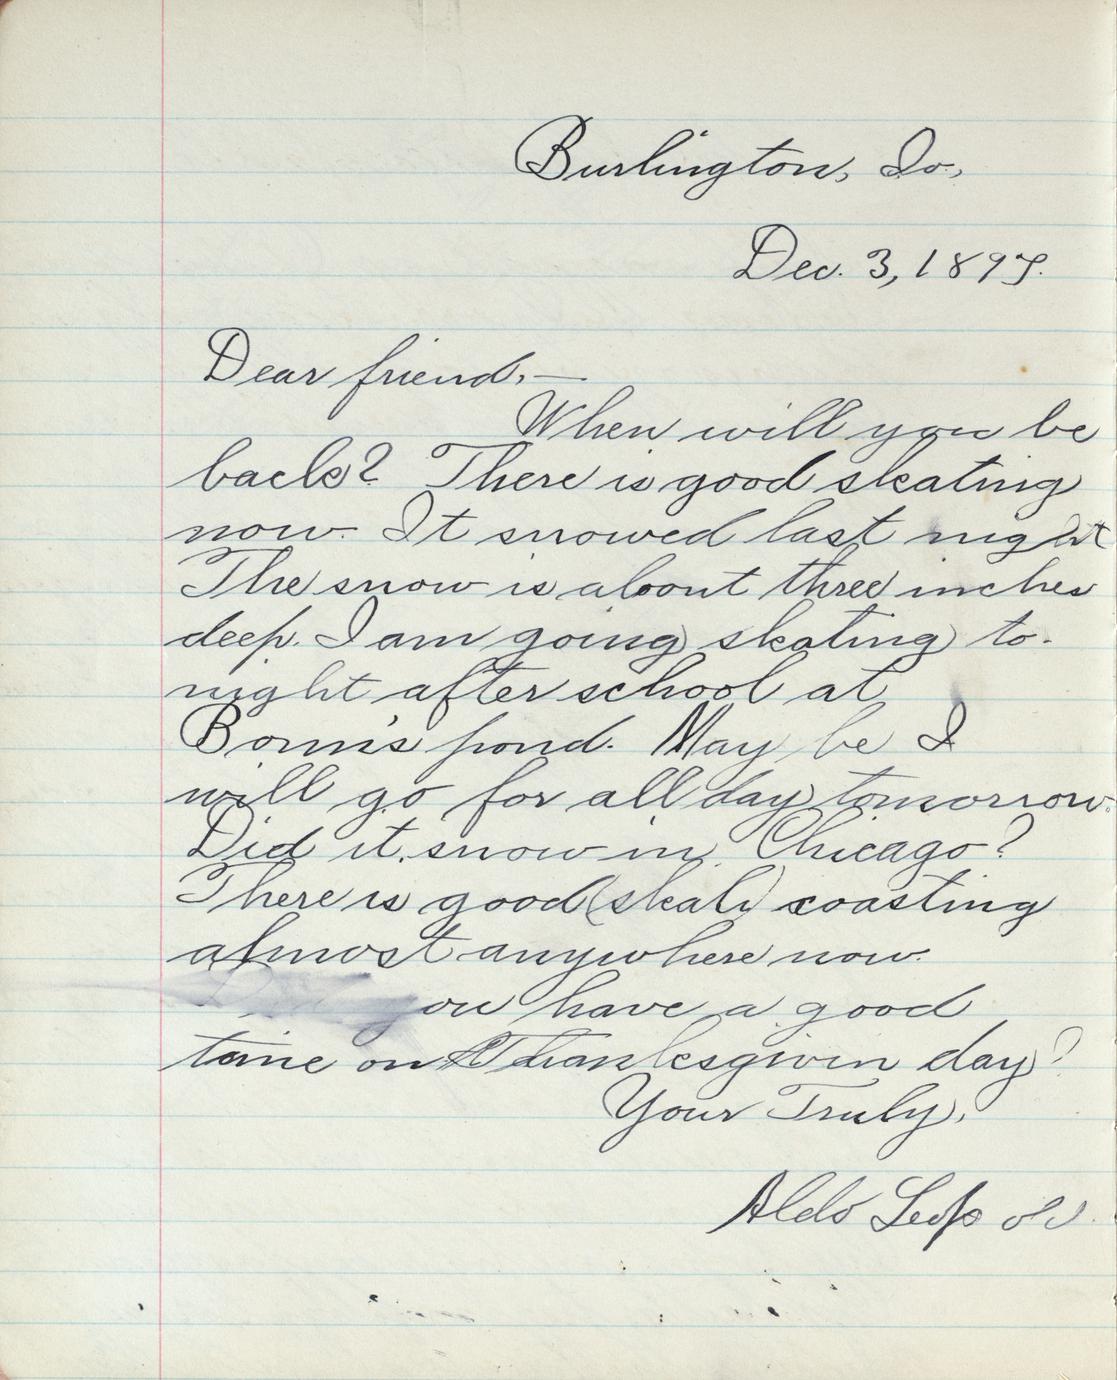 Burlington, Io,
Dec. 3, 1897.
Dear friend,—
When will you be
back? There is good skating
now. It snowed last night
The snow is about three inches
deep. I am going skating to-
night after school at
pond. May be I
will go for all day tomorrow.
Did it snow in Chicago?
There is good (skati) coasting
almost anywhere now.
you have a good
time on Thanksgivin day?
Your Truly,
Aldo Leopold